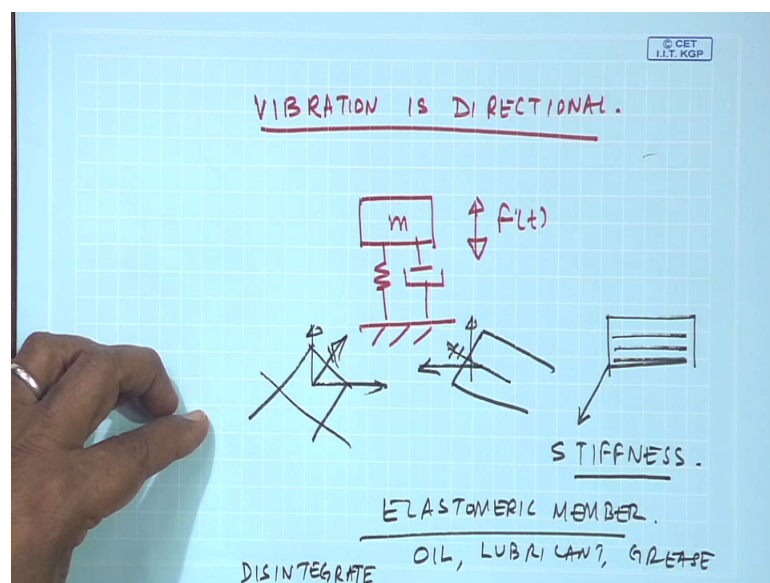 © CET
I.I.T. KGP
VIBRATION IS DIRECTIONAL.
m
F(t)
STIFFNESS.
ELASTOMERIC MEMBER.
OIL, LUBRICANT, GREASE
DISINTEGRATE